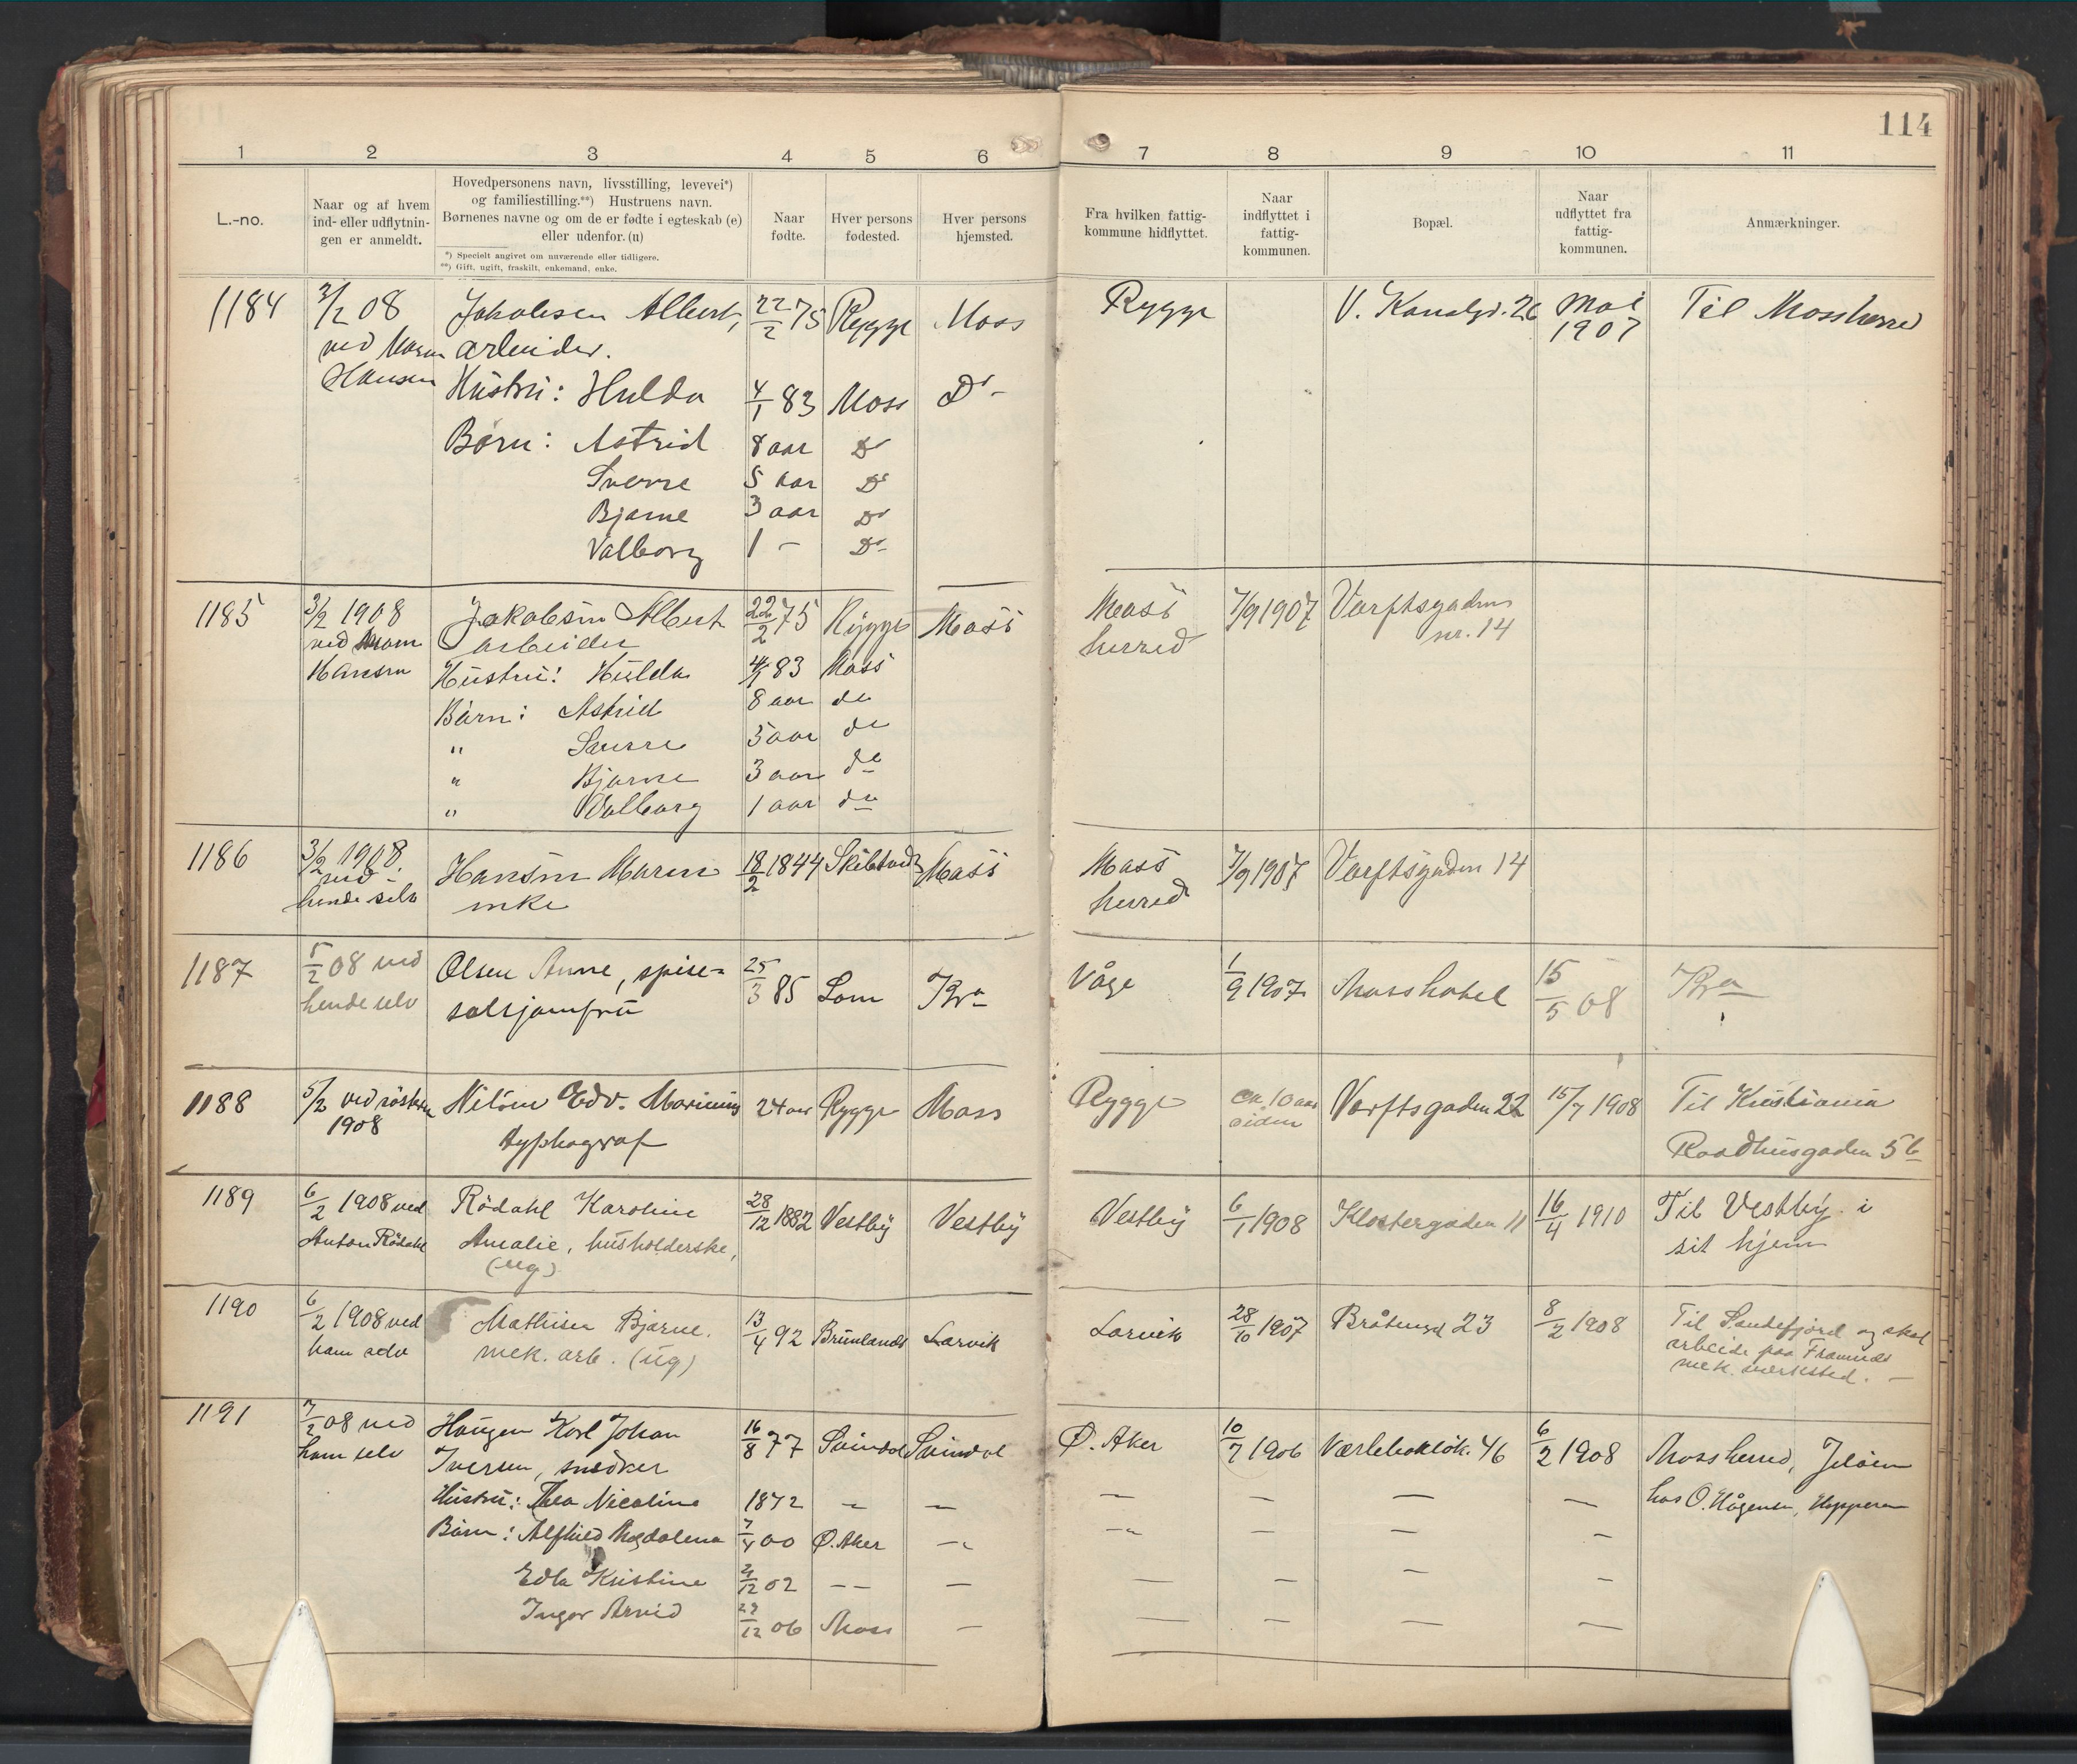 114
1 2 3 4 5 6 7 8 9 10 11
L.-no.
Naar og af hvem
ind- eller udflytnin-
gen er anmeldt.
Hovedpersonens navn, livsstilling, levevei*)
og familiestilling.**) Hustruens navn.
Børnenes navne og om de er fødte i egteskab (e)
eller udenfor. (u)
*) Specielt angivet om nuværende eller tidligere.
**) Gift, ugift, fraskilt, enkemand, enke.
Naar
fødte.
Hver persons
fødested.
Hver persons
hjemsted.
Fra hvilken fattig-
kommune hidflyttet.
Naar
indflyttet i
fattig-
kommunen.
Bopæl.
Naar
udflyttet fra
fattig-
kommunen.
Anmærkninger.
1184 3/2 08 Jakobsen Albert, 22/2 75 Rygge Moss Rygge V. Kanalgd. 26 Mai Til Mossherred
ved Maren arbeider. 1907
Hansen Hustru: Hulda 4/1 83 Moss Do -
Børn: Astrid 8 aar Do
Sverre 5 aar Do
Bjarne 3 aar Do
Valborg 1 - Do
1185 3/2 1908 Jakobsen Albert 22/2 75 Rygge Moss Moss 7/9 1907 Varftsgaden
ved Maren arbeider herred nr. 14
Hansen Hustru: Hulda 4/1 83 Moss
Børn: Astrid 8 aar do
" Sverre 5 aar do
" Bjarne 3 aar do
" Valborg 1 aar do
1186 3/2 1908 Hansen Maren 18/2 1844 Skibtvedt Moss Moss 7/9 1907 Varftsgaden 14
ved enke herred
hende selv
1187 5/2 08 ved Olsen Anne, spise= 25/3 85 Lom Kra Våge 1/9 1907 Moss hotel 15/5 08 Kra
hende selv salsjomfru
1188 5/2 ved söster Nilsen Edv. Marinius 24 aar Rygge Moss Rygge ca 10 aar Varftsgaden 22 15/7 1908 Til Kristiania
1908 typhograf siden Raadhusgaden 5 b
1189 6/2 1908 ved Rödahl Karoline 28/12 1882 Vestby Vestby Vestby 6/1 1908 Klostergaden 11 16/4 1910 Til Vestby i
Anton Rödahl Amalie, husholderske, sit hjem
(ug)
1190 6/2 1908 ved Mathisen Bjarne. 13/4 92 Brunlanes Larvik Larvik 28/10 1907 Bråtengd 23 8/2 1908 Til Sandefjord og skal
ham selv mek. arb. (ug) arbeide paa Framnæs
mek. værksted. -
1191 7/2 08 ved Haugen Karl Johan 16/8 77 Svindal Svindal Ø. Aker 10/7 1906 Værlebakløk. 46 6/2 1908 Moss herred, Jeløen
ham selv Iversen, snedker
Hustru: Thea Nicoline 1872 - - - - - - hos O. Hågensen, Uppperen
Børn: Alfhild Magdalena 7/4 00 Ø. Aker - - - - -
Edla Kristine 4/12 02 - - - - - - -
Ingar Arvid 29/12 06 Moss - - - - -